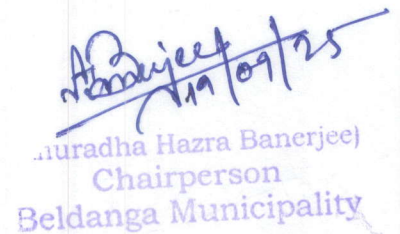 ABanerjee
19/09/25
.nuradha Hazra Banerjee)
Chairperson
Beldanga Municipality